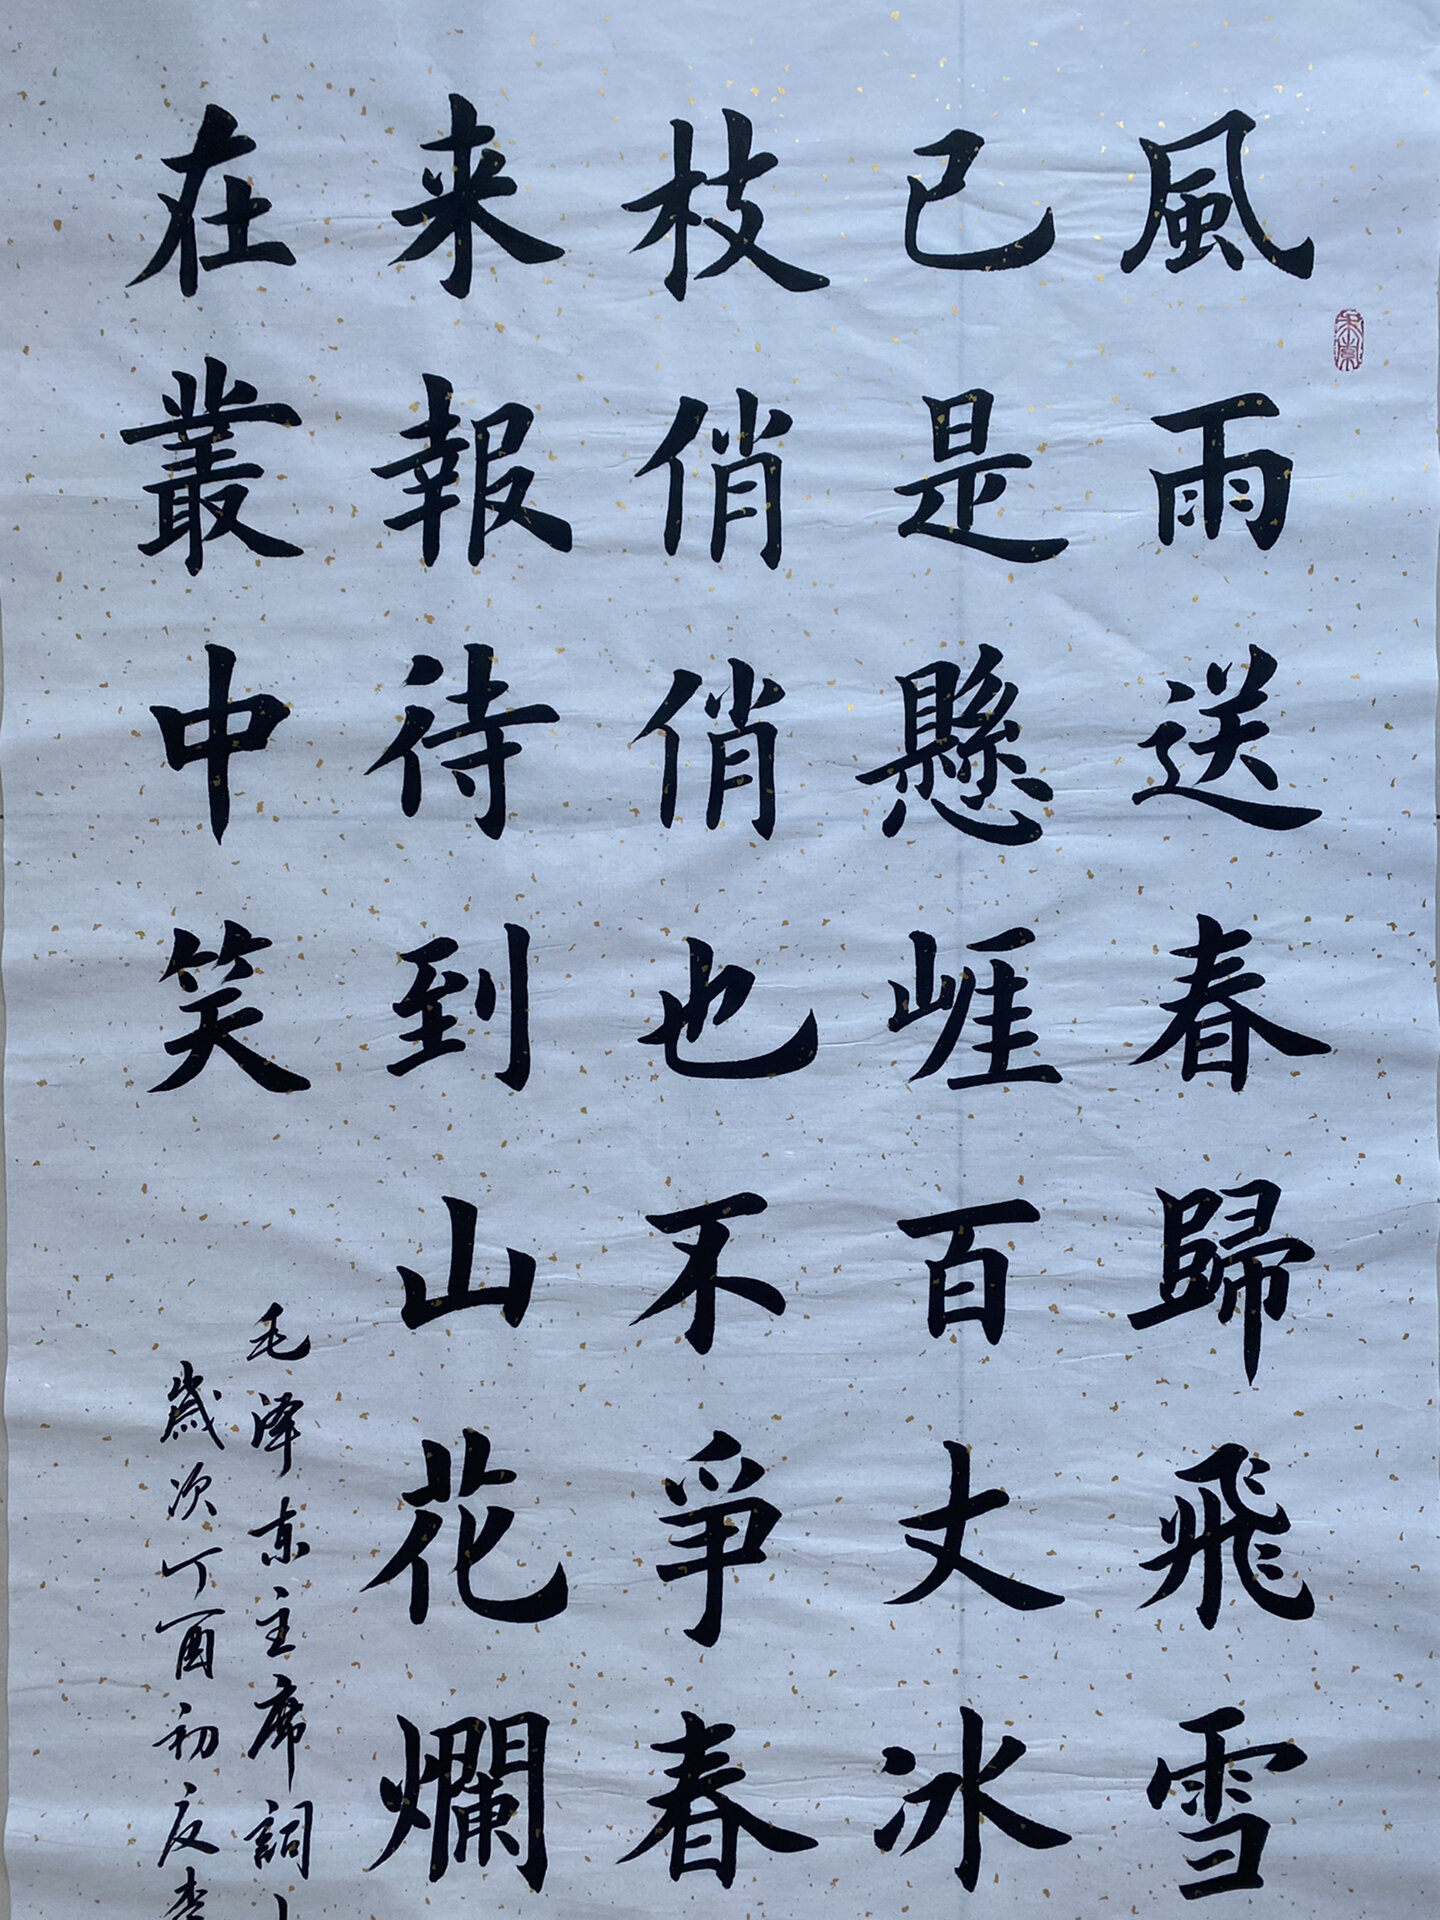 風雨送春歸飛雪
已是懸崕百丈冰
枝俏俏也不爭春
来報待到山花爛
在叢中笑
毛泽东主席詞
歲次丁酉初夏李